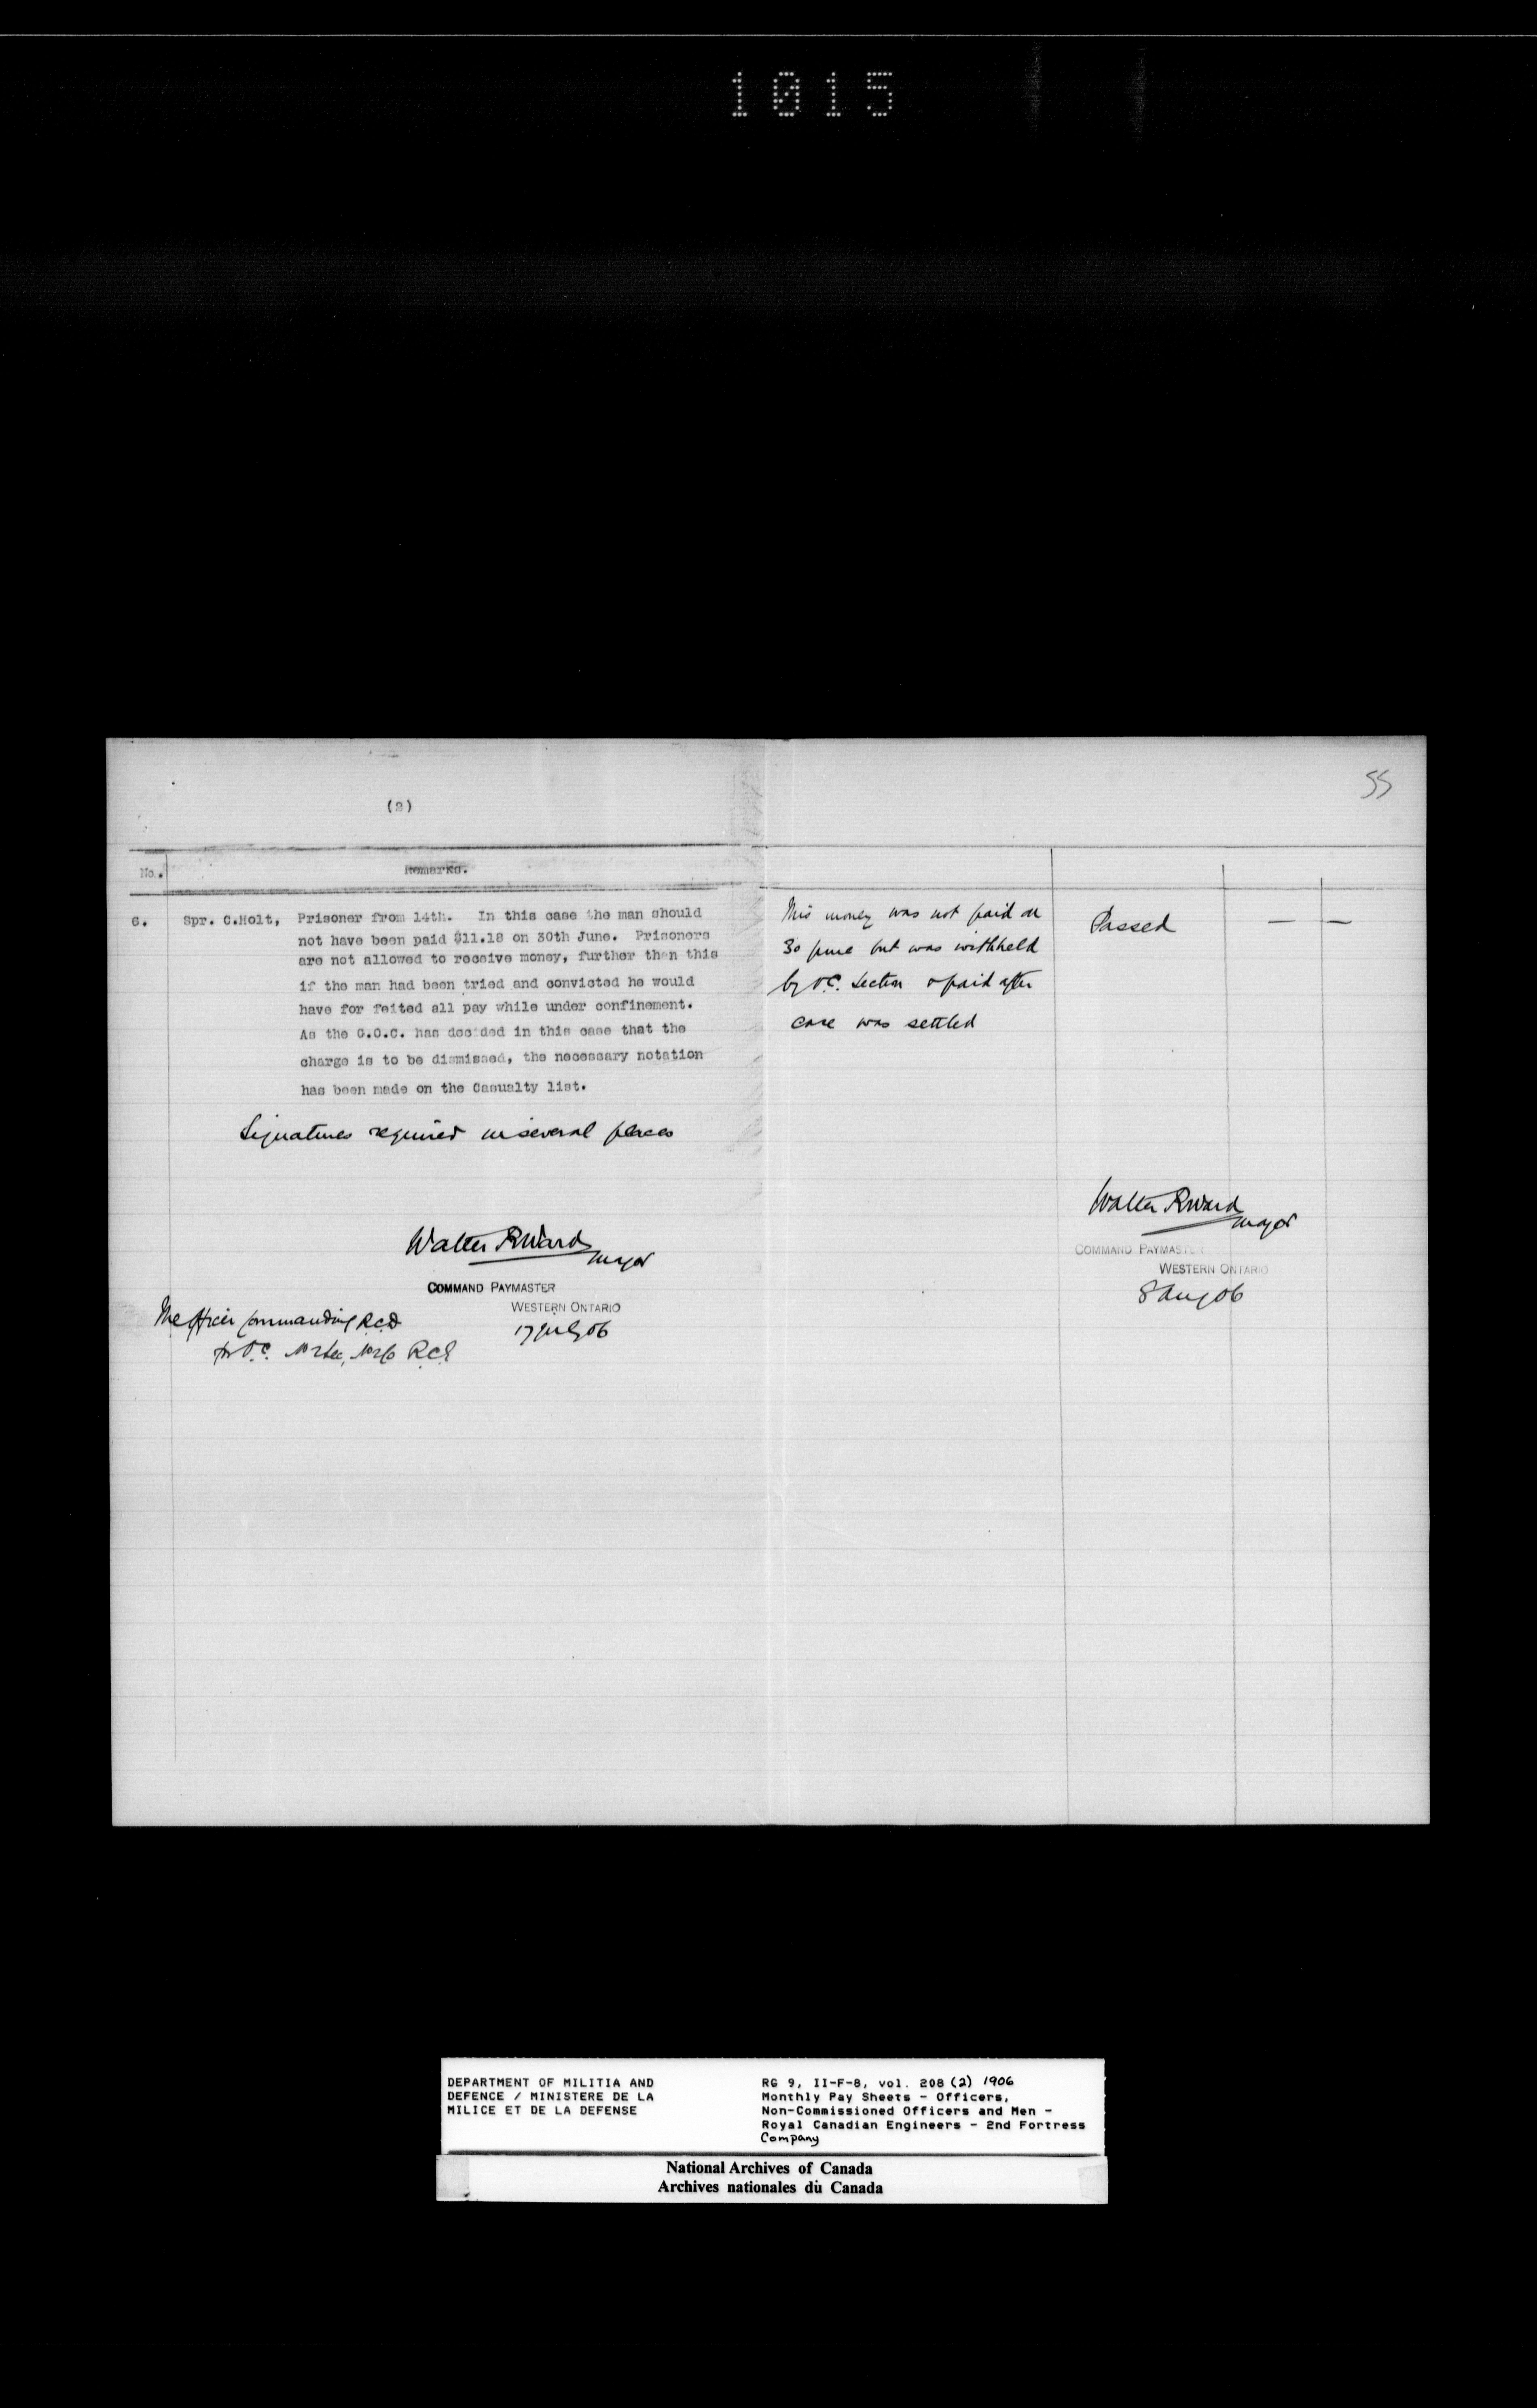 1015
55
(2)
No.. Remarks.
6. Spr. C.Holt, Prisoner from 14th. In this case the man should
not have been paid $11.18 on 30th June. Prisoners
are not allowed to receive money, further than this
if the man had been tried and convicted he would
have for feited all pay while under confinement.
As the G.O.C. has decided in this case that the
charge is to be dismissed, the necessary notation
has been made on the Casualty list.
Signatures required in several places
Walter R Ward
Major
COMMAND PAYMASTER
WESTERN ONTARIO
17 July 06
The Officer Commanding R.C.D
for O.C. No 2 Sec, No 2 Co R.C.E
This money was not paid on
30 June but was withheld
by O.C. Section & paid after
case was settled
Passed — —
Walter R Ward
Major
COMMAND PAYMASTER
WESTERN ONTARIO
8 Aug 06
DEPARTMENT OF MILITIA AND
DEFENCE / MINISTERE DE LA
MILICE ET DE LA DEFENSE
RG 9, II-F-8, vol. 208 (2) 1906
Monthly Pay Sheets - Officers,
Non-Commissioned Officers and Men -
Royal Canadian Engineers - 2nd Fortress
Company
National Archives of Canada
Archives nationales du Canada